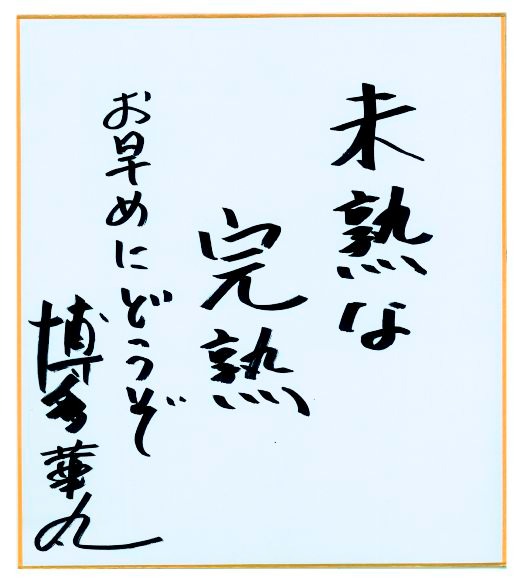 未熟な
完熟
お早めにどうぞ
博多華丸